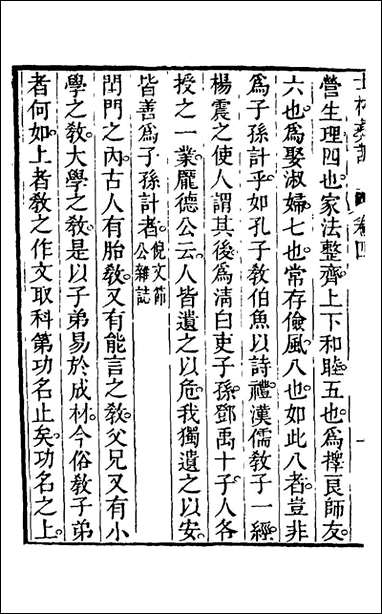 營生理四也家法整齊上下和睦五也爲擇良師友
六也爲娶淑婦七也常存儉風八也如此八者豈非
爲子孫計乎如孔子敎伯魚以詩禮漢儒敎子一經
楊震之使人謂其後爲淸白吏子孫鄧禹十子人各
授之一業龐德公云人皆遺之以危我獨遺之以安
皆善爲子孫計者倪文節公雜誌
閨門之內古人有胎敎又有能言之敎父兄又有小
學之敎大學之敎是以子弟易於成材今俗敎子弟
者何如上者敎之作文取科第功名止矣功名之上